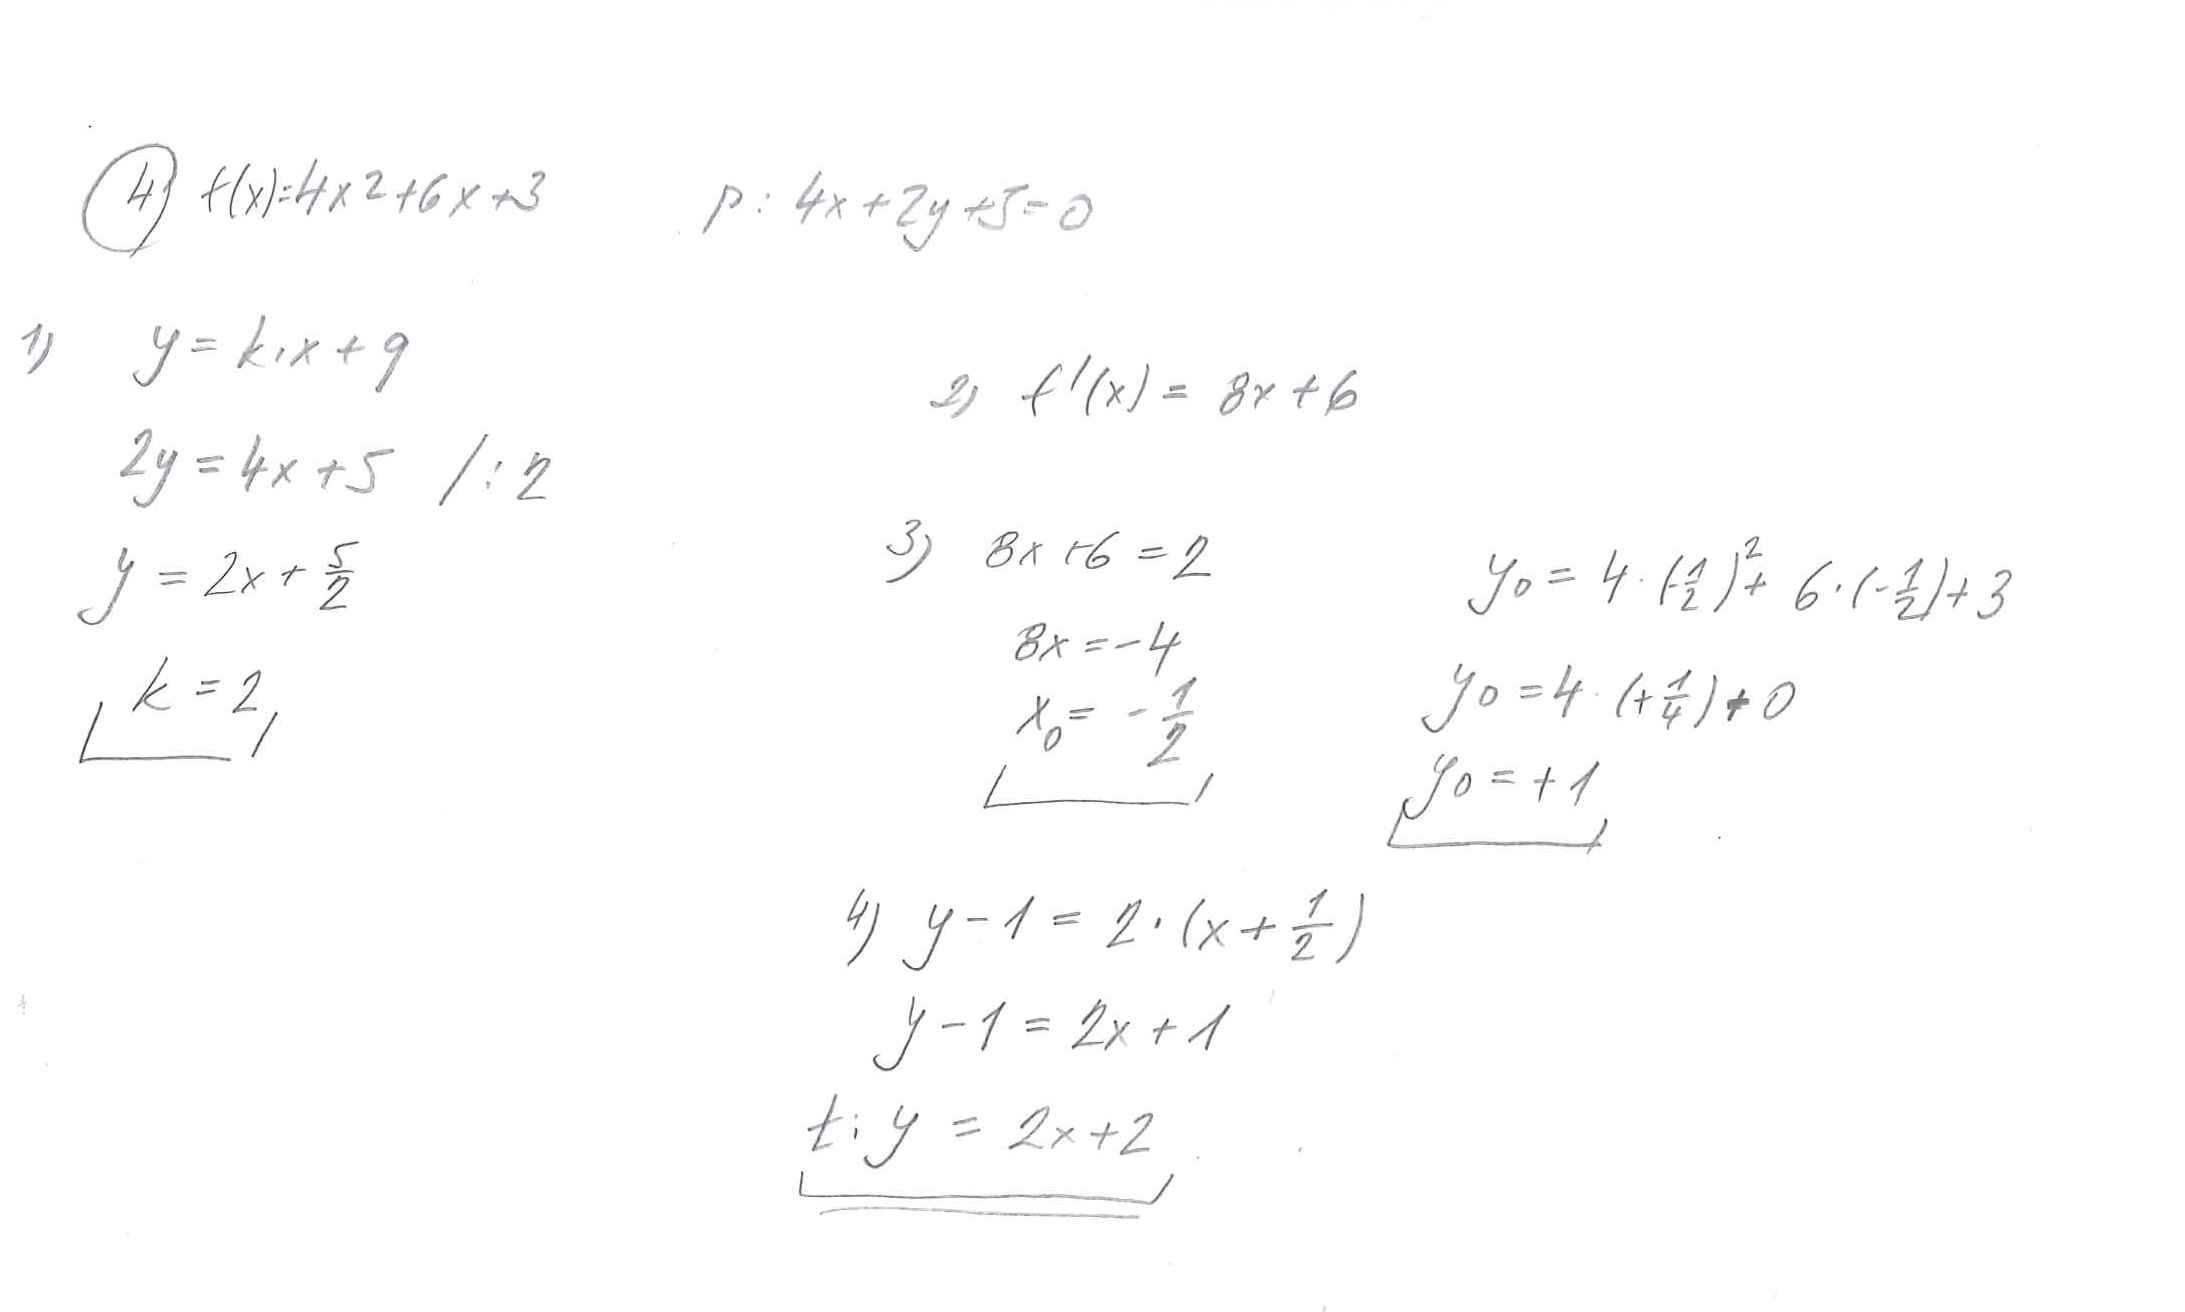 4) f(x)=4x2+6x+3 p: 4x+2y+5=0
1) y = k·x + q
2y = 4x+5 /:2
y = 2x + 5/2
k = 2
2) f'(x) = 8x+6
3) 8x+6 = 2
8x = -4
x₀ = - 1/2
y₀ = 4·(-1/2)² + 6·(-1/2)+3
y₀ = 4·(+1/4)+0
y₀ = +1
4) y-1 = 2·(x+1/2)
y-1 = 2x+1
t: y = 2x+2